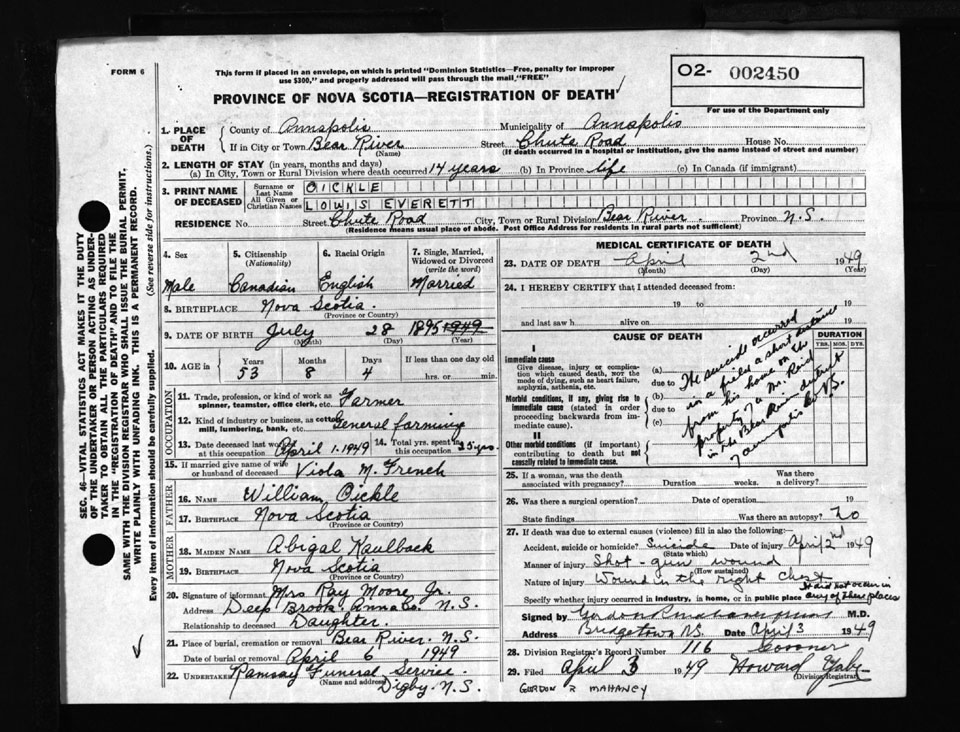 FORM 6
This form if placed in an envelope, on which is printed "Dominion Statistics—Free, penalty for improper
use $300," and properly addressed will pass through the mail, "FREE"
PROVINCE OF NOVA SCOTIA—REGISTRATION OF DEATH
O2- 002450
For use of the Department only
SEC. 46—VITAL STATISTICS ACT MAKES IT THE DUTY
OF THE UNDERTAKER OR PERSON ACTING AS UNDER-
TAKER TO OBTAIN ALL THE PARTICULARS REQUIRED
IN THE "REGISTRATION OF DEATH" AND TO FILE THE
SAME WITH THE DIVISION REGISTRAR WHO SHALL ISSUE THE BURIAL PERMIT.
WRITE PLAINLY WITH UNFADING INK. THIS IS A PERMANENT RECORD.
Every item of information should be carefully supplied. (See reverse side for instructions.)
1. PLACE OF DEATH County of Annapolis Municipality of Annapolis
If in City or Town Bear River Street Chute Road House No.
(Name) (If death occurred in a hospital or institution, give the name instead of street and number)
2. LENGTH OF STAY (in years, months and days)
(a) In City, Town or Rural Division where death occurred 14 years (b) In Province life (c) In Canada (if immigrant)
3. PRINT NAME OF DECEASED Surname or Last Name OICKLE
All Given or Christian Names LOUIS EVERETT
RESIDENCE No. Street Chute Road City, Town or Rural Division Bear River Province N.S.
(Residence means usual place of abode. Post Office Address for residents in rural parts not sufficient)
4. Sex 5. Citizenship (Nationality) 6. Racial Origin 7. Single, Married, Widowed or Divorced (write the word)
Male Canadian English Married
8. BIRTHPLACE Nova Scotia
(Province or Country)
9. DATE OF BIRTH July 28 1895 1949
(Month) (Day) (Year)
10. AGE in Years Months Days If less than one day old
53 8 4 hrs. or min.
OCCUPATION
11. Trade, profession, or kind of work as spinner, teamster, office clerk, etc. Farmer
12. Kind of industry or business, as cotton mill, lumbering, bank, etc. General farming
13. Date deceased last worked at this occupation April 1-1949 14. Total yrs. spent in this occupation 25 yrs.
15. If married give name of wife or husband of deceased Viola M. French
FATHER
16. NAME William Oickle
17. BIRTHPLACE Nova Scotia
(Province or Country)
MOTHER
18. MAIDEN NAME Abigal Kaulback
19. BIRTHPLACE Nova Scotia
(Province or Country)
20. Signature of informant Mrs Ray Moore Jr.
Address Deep Brook Anna Co. N.S.
Relationship to deceased Daughter.
21. Place of burial, cremation or removal Bear River. N.S.
Date of burial or removal April 6 1949
22. UNDERTAKER Ramsay Funeral Service.
(Name and address) Digby. N.S.
MEDICAL CERTIFICATE OF DEATH
23. DATE OF DEATH April 2nd 1949
(Month) (Day) (Year)
24. I HEREBY CERTIFY that I attended deceased from:
19 to 19
and last saw h alive on 19
CAUSE OF DEATH DURATION
YRS. MOS. DYS.
I
Immediate cause
Give disease, injury or complication which caused death, not the mode of dying, such as heart failure, asphyxia, asthenia, etc.
(a)
due to
Morbid conditions, if any, giving rise to immediate cause (stated in order proceeding backwards from immediate cause).
(b)
due to
(c)
II
Other morbid conditions (if important) contributing to death but not causally related to immediate cause.
The suicide occurred
in a field a short distance
from his home on the
property of a Mr. Reid
in the Bear River district
Annapolis Co N.S.
25. If a woman, was the death associated with pregnancy? Duration weeks. Was there a delivery?
26. Was there a surgical operation? Date of operation 19
State findings Was there an autopsy? No
27. If death was due to external causes (violence) fill in also the following:—
Accident, suicide or homicide? Suicide Date of injury April 2nd 1949
(State which)
Manner of injury Shot-gun wound
(How sustained)
Nature of injury Wound in the right chest
Specify whether injury occurred in industry, in home, or in public place It did not occur in any of these places
Signed by Gordon R Mahaney M.D.
Address Bridgetown N.S. Date April 3 1949
Coroner
28. Division Registrar's Record Number 116
29. Filed April 3 1949 Howard
(Division Registrar)
GORDON R MAHANEY